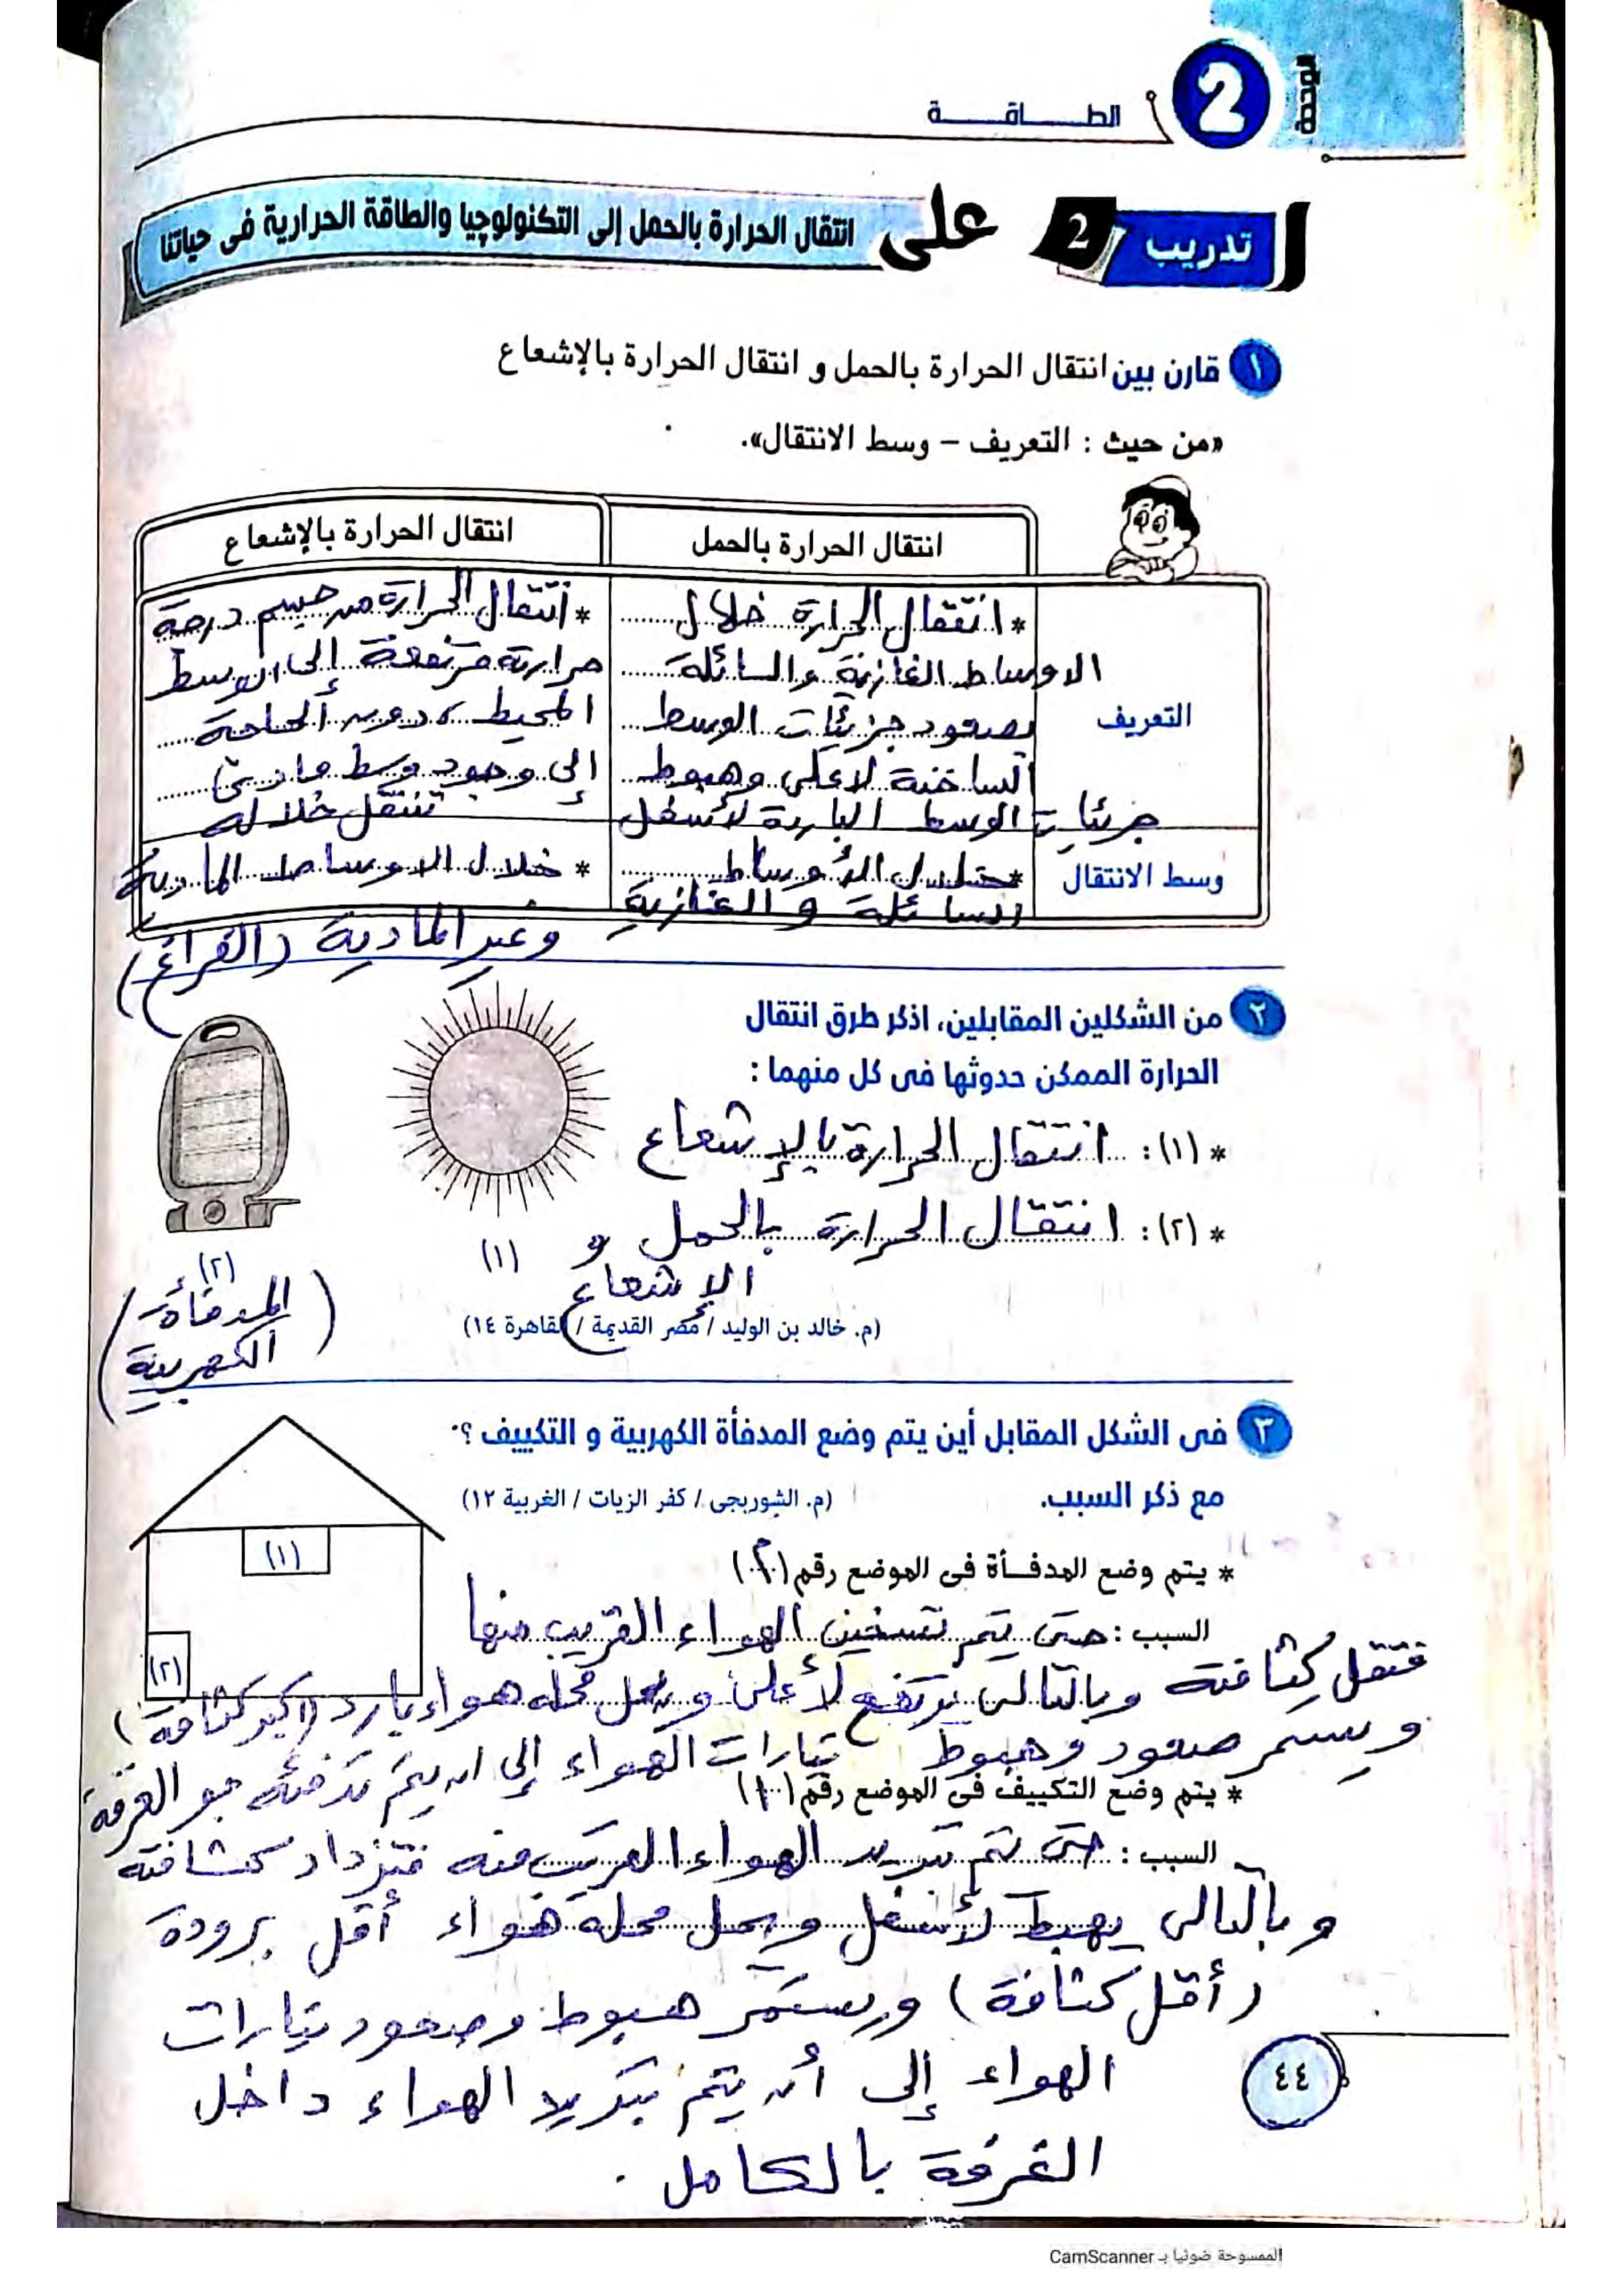 الوحدة
2
الطــاقــة
تدريب 2 على انتقال الحرارة بالحمل إلى التكنولوچيا والطاقة الحرارية فى حياتنا
١ قارن بين انتقال الحرارة بالحمل و انتقال الحرارة بالإشعاع
«من حيث : التعريف – وسط الانتقال».
انتقال الحرارة بالحمل
انتقال الحرارة بالإشعاع
التعريف
* انتقال الحرارة خلال
الاوساط الغازية والسائلة
بصعود جزيئات الوسط
الساخنة لاعلى وهبوط
جزيئات الوسط الباردة لأسفل
* انتقال الحرارة من جسم درجة
حرارته مرتفعة إلى الوسط
المحيط، دون الحاجة
إلى وجود وسط مادى
تنتقل خلاله
وسط الانتقال
* خلال الأوساط
السائلة و الغازية
* خلال الاوساط المادية
وغير المادية (الفراغ)
٢ من الشكلين المقابلين، اذكر طرق انتقال
الحرارة الممكن حدوثها فى كل منهما :
* (١) : انتقال الحرارة بالإشعاع
* (٢) : انتقال الحرارة بالحمل و
الإشعاع
(١)
(٢)
(المدفأة
الكهربية)
(م. خالد بن الوليد / مصر القديمة / القاهرة ١٤)
٣ فى الشكل المقابل أين يتم وضع المدفأة الكهربية و التكييف ؟
مع ذكر السبب.
(م. الشوربجى / كفر الزيات / الغربية ١٢)
(١)
(٢)
* يتم وضع المدفـأة فى الموضع رقم (٢)
السبب : حتى يتم تسخين الهواء القريب منها
فتقل كثافته وبالتالى يرتفع لأعلى و يحل محله هواء بارد (اكبر كثافة)
ويستمر صعود وهبوط تيارات الهواء إلى ان يتم تدفئة جو الغرفة
* يتم وضع التكييف فى الموضع رقم (١)
السبب : حتى يتم تبريد الهواء القريب منه فتزداد كثافته
وبالتالى يهبط لأسفل ويحل محله هواء أقل برودة
(أقل كثافة) ويستمر هبوط وصعود تيارات
الهواء إلى أن يتم تبريد الهواء داخل
الغرفة بالكامل .
٤٤
الممسوحة ضوئيا بـ CamScanner